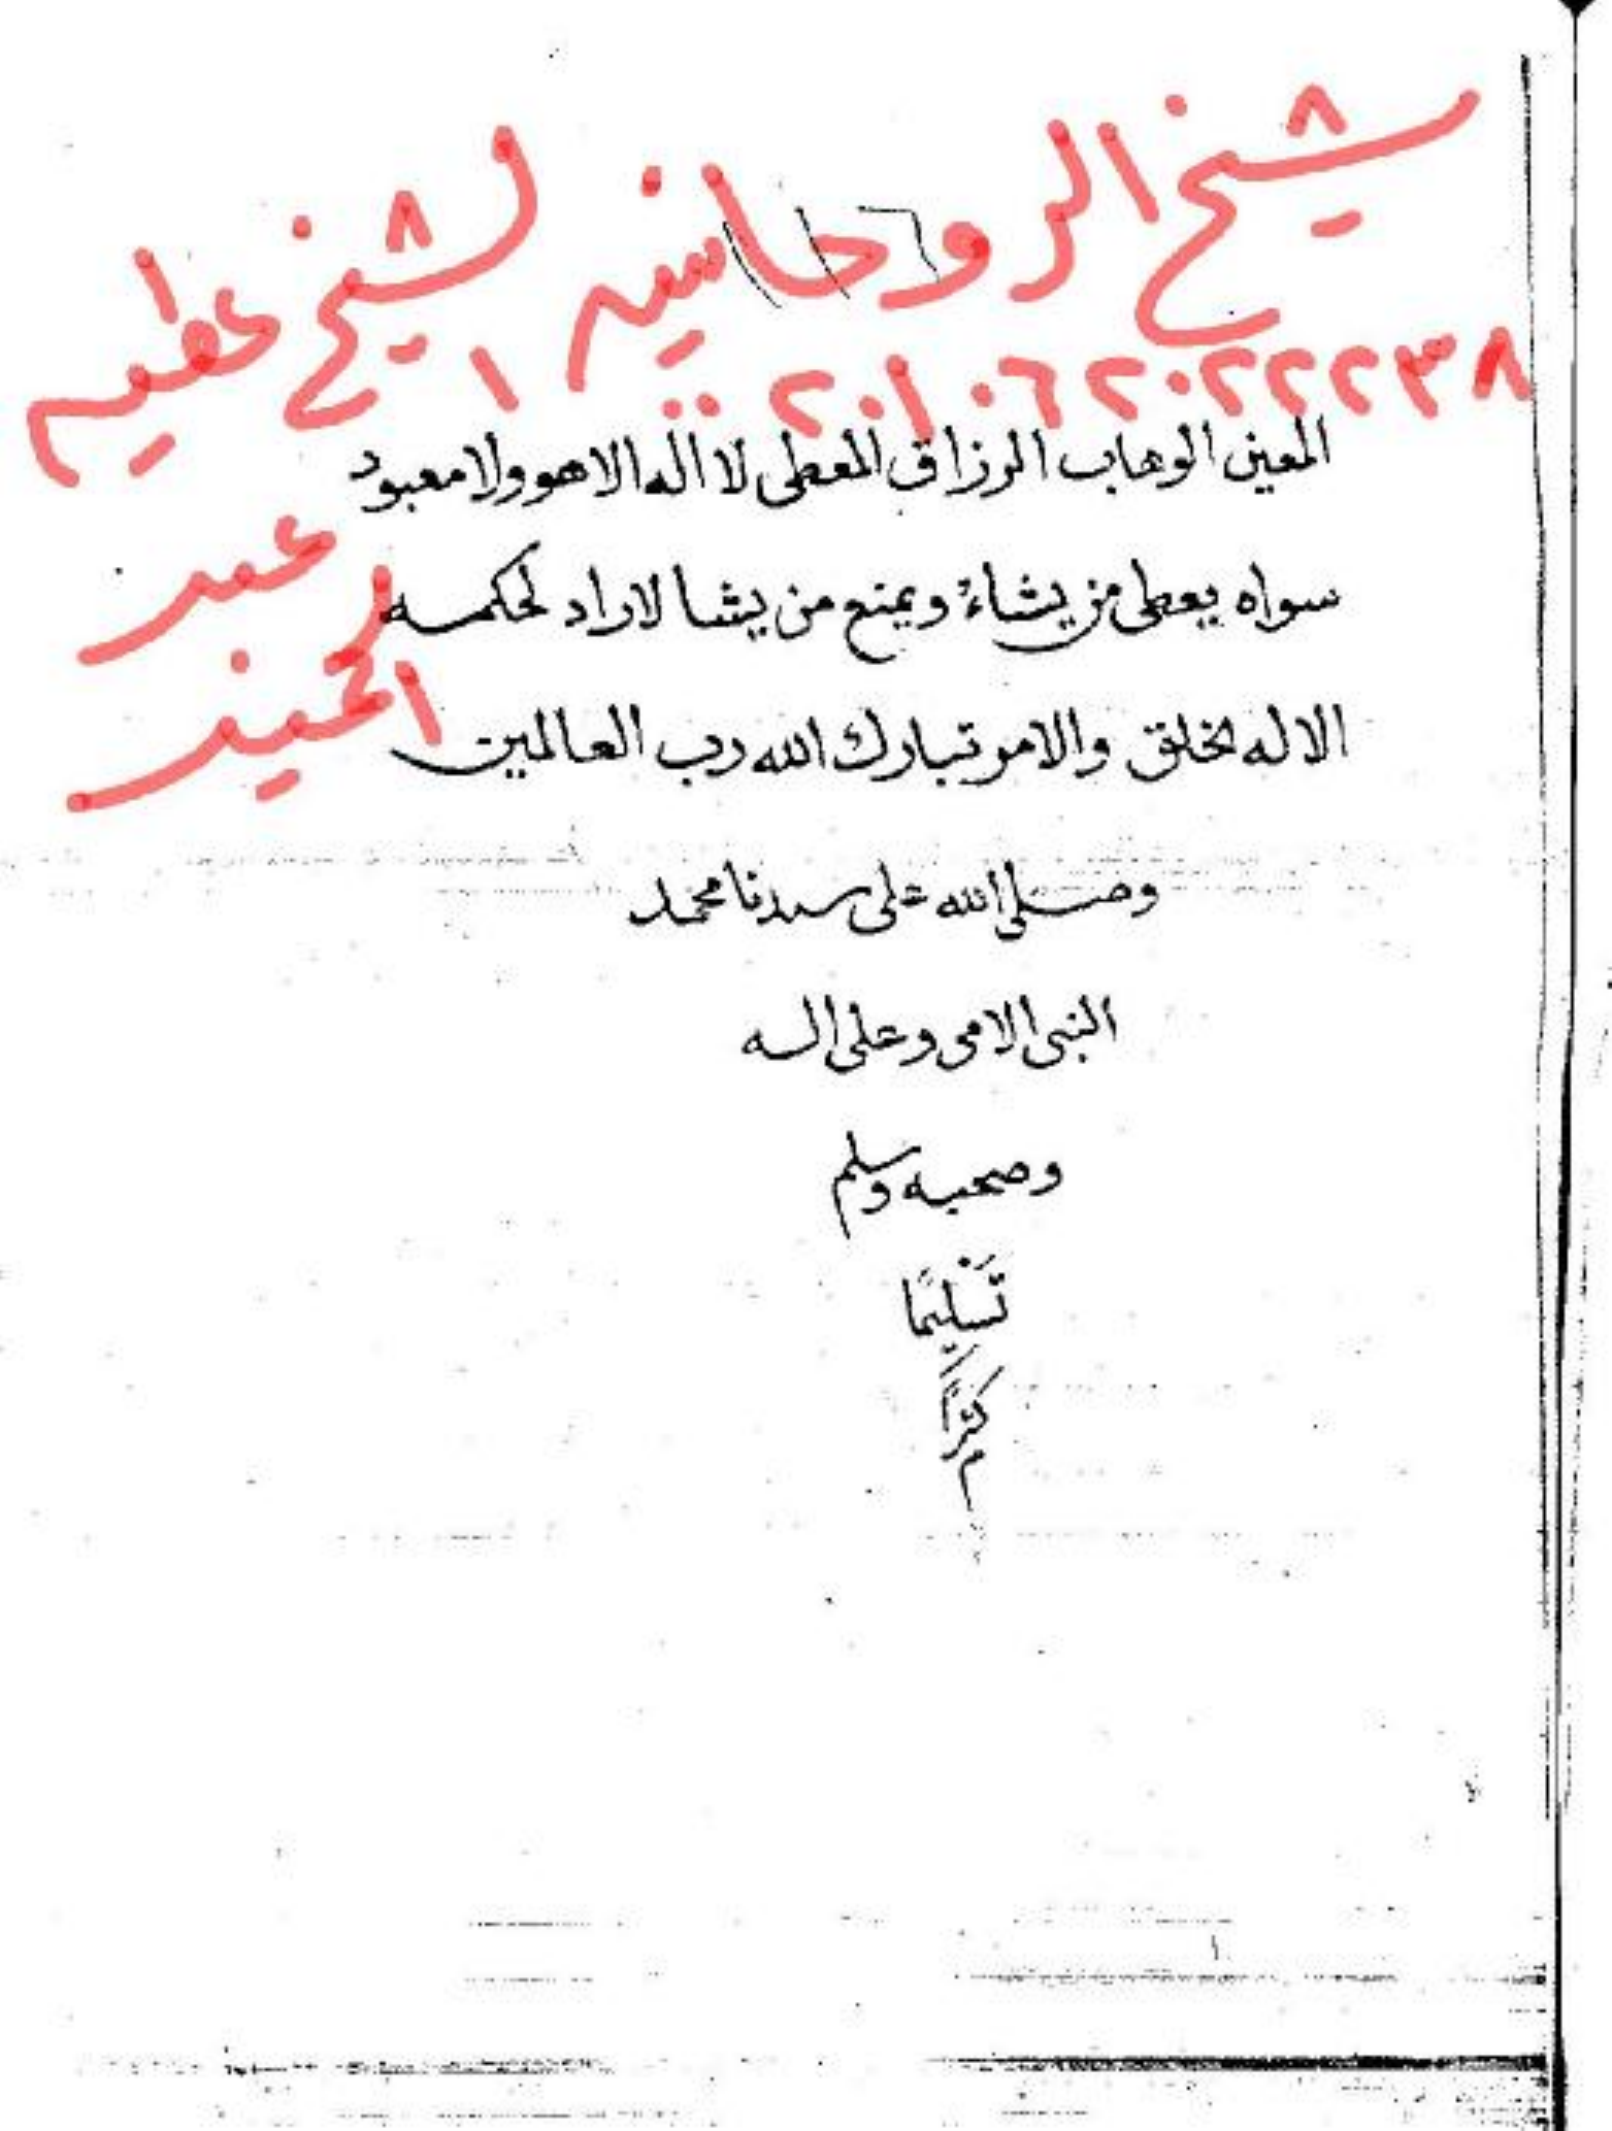 شيخ الروحانيه الشيخ عظيم
٠٠٢٠١٠٦٢٠٢٢٢٣٨
المعين الوهاب الرزاق المعطى لا اله الا هو ولا معبود
سواه يعطى من يشاء ويمنع من يشا لاراد لحكمه
عبد
الا له الخلق والامر تبارك الله رب العالمين
وصلى الله على سيدنا محمد
النبى الامى وعلى اله
وصحبه وسلم
تسليمًا
كثيرًا